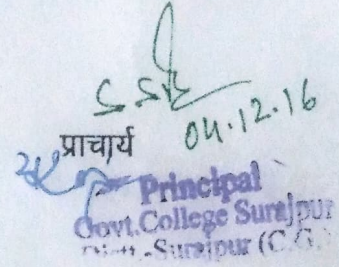 04.12.16
प्राचार्य
Principal
Govt. College Surajpur
Distt.-Surajpur (C.G.)